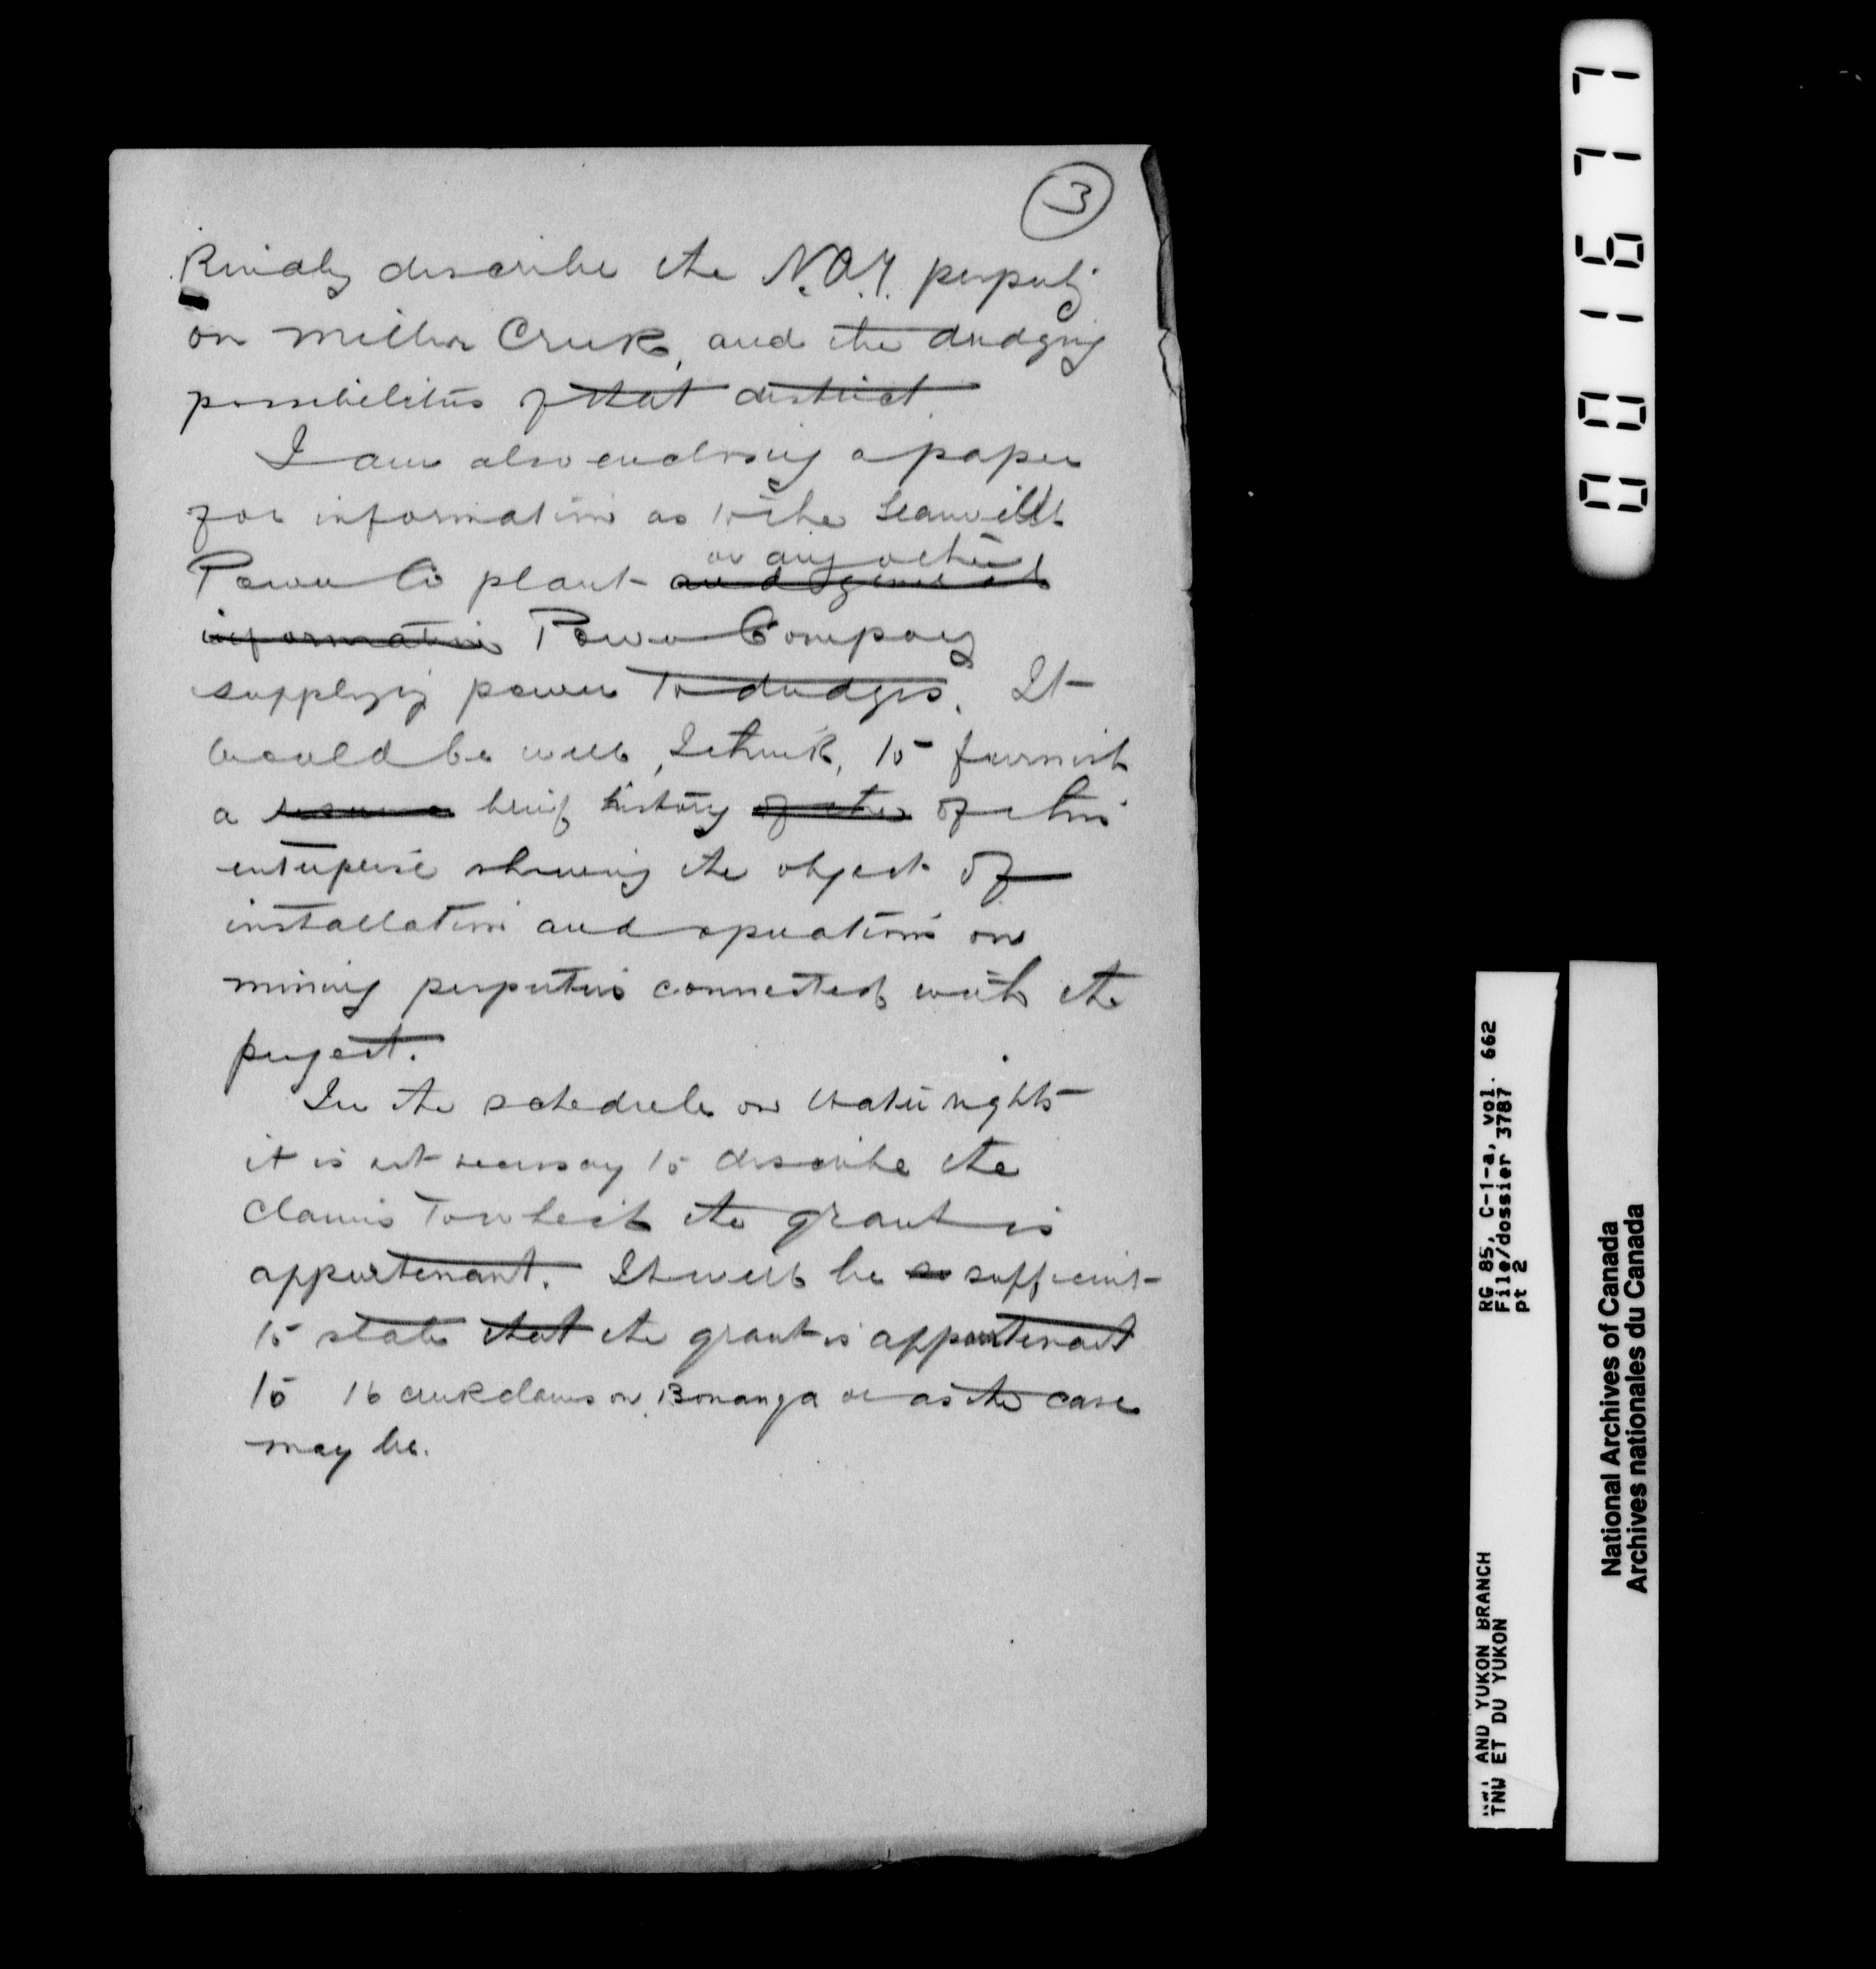 3
Kindly describe the N.A.T. property
on Miller Creek, and the dredging
possibilities of that district.
I am also enclosing a paper
for information as to the
or any other
Power Co plant and general
information Power Company
supplying power to dredges. It
would be well, I think, to furnish
a resume brief history of the of this
enterprise showing the object of
installation and operations on
mining properties connected with the
project.
In the schedule on Water rights
it is not necessary to describe the
claims to which the grant is
appurtenant. It will be so sufficient
to state that the grant is appurtenant
to 16 creek claims on Bonanza or as the case
may be.
001677
RG 85, C-1-a, vol. 662
File/dossier 3787
pt 2
NWT AND YUKON BRANCH
TNW ET DU YUKON
National Archives of Canada
Archives nationales du Canada